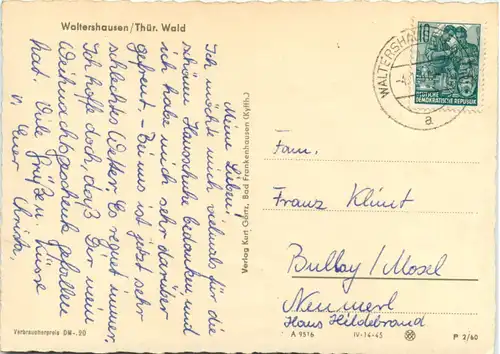 Waltershausen/Thür. Wald
Meine Lieben!
Ich möchte mich vielmals für die
schönen Hausschuhe bedanken und
ich habe mich sehr darüber
gefreut. – Bei uns ist jetzt sehr
schlechtes Wetter. Es regnet immer.
Ich hoffe doch, daß Dir mein
Weihnachtsgeschenk gefallen
hat. Viele Grüße u. Küsse
v. Euer Christa.
Verbraucherpreis DM -.20
Verlag Kurt Gentz, Bad Frankenhausen (Kyffh.)
WALTERSHAUSEN
a
10
DEUTSCHE
DEMOKRATISCHE REPUBLIK
Fam.
Franz Klint
Bullay/Mosel
Neumerl
Haus Hildebrand
A 9516 IV-14-45 P 2/60